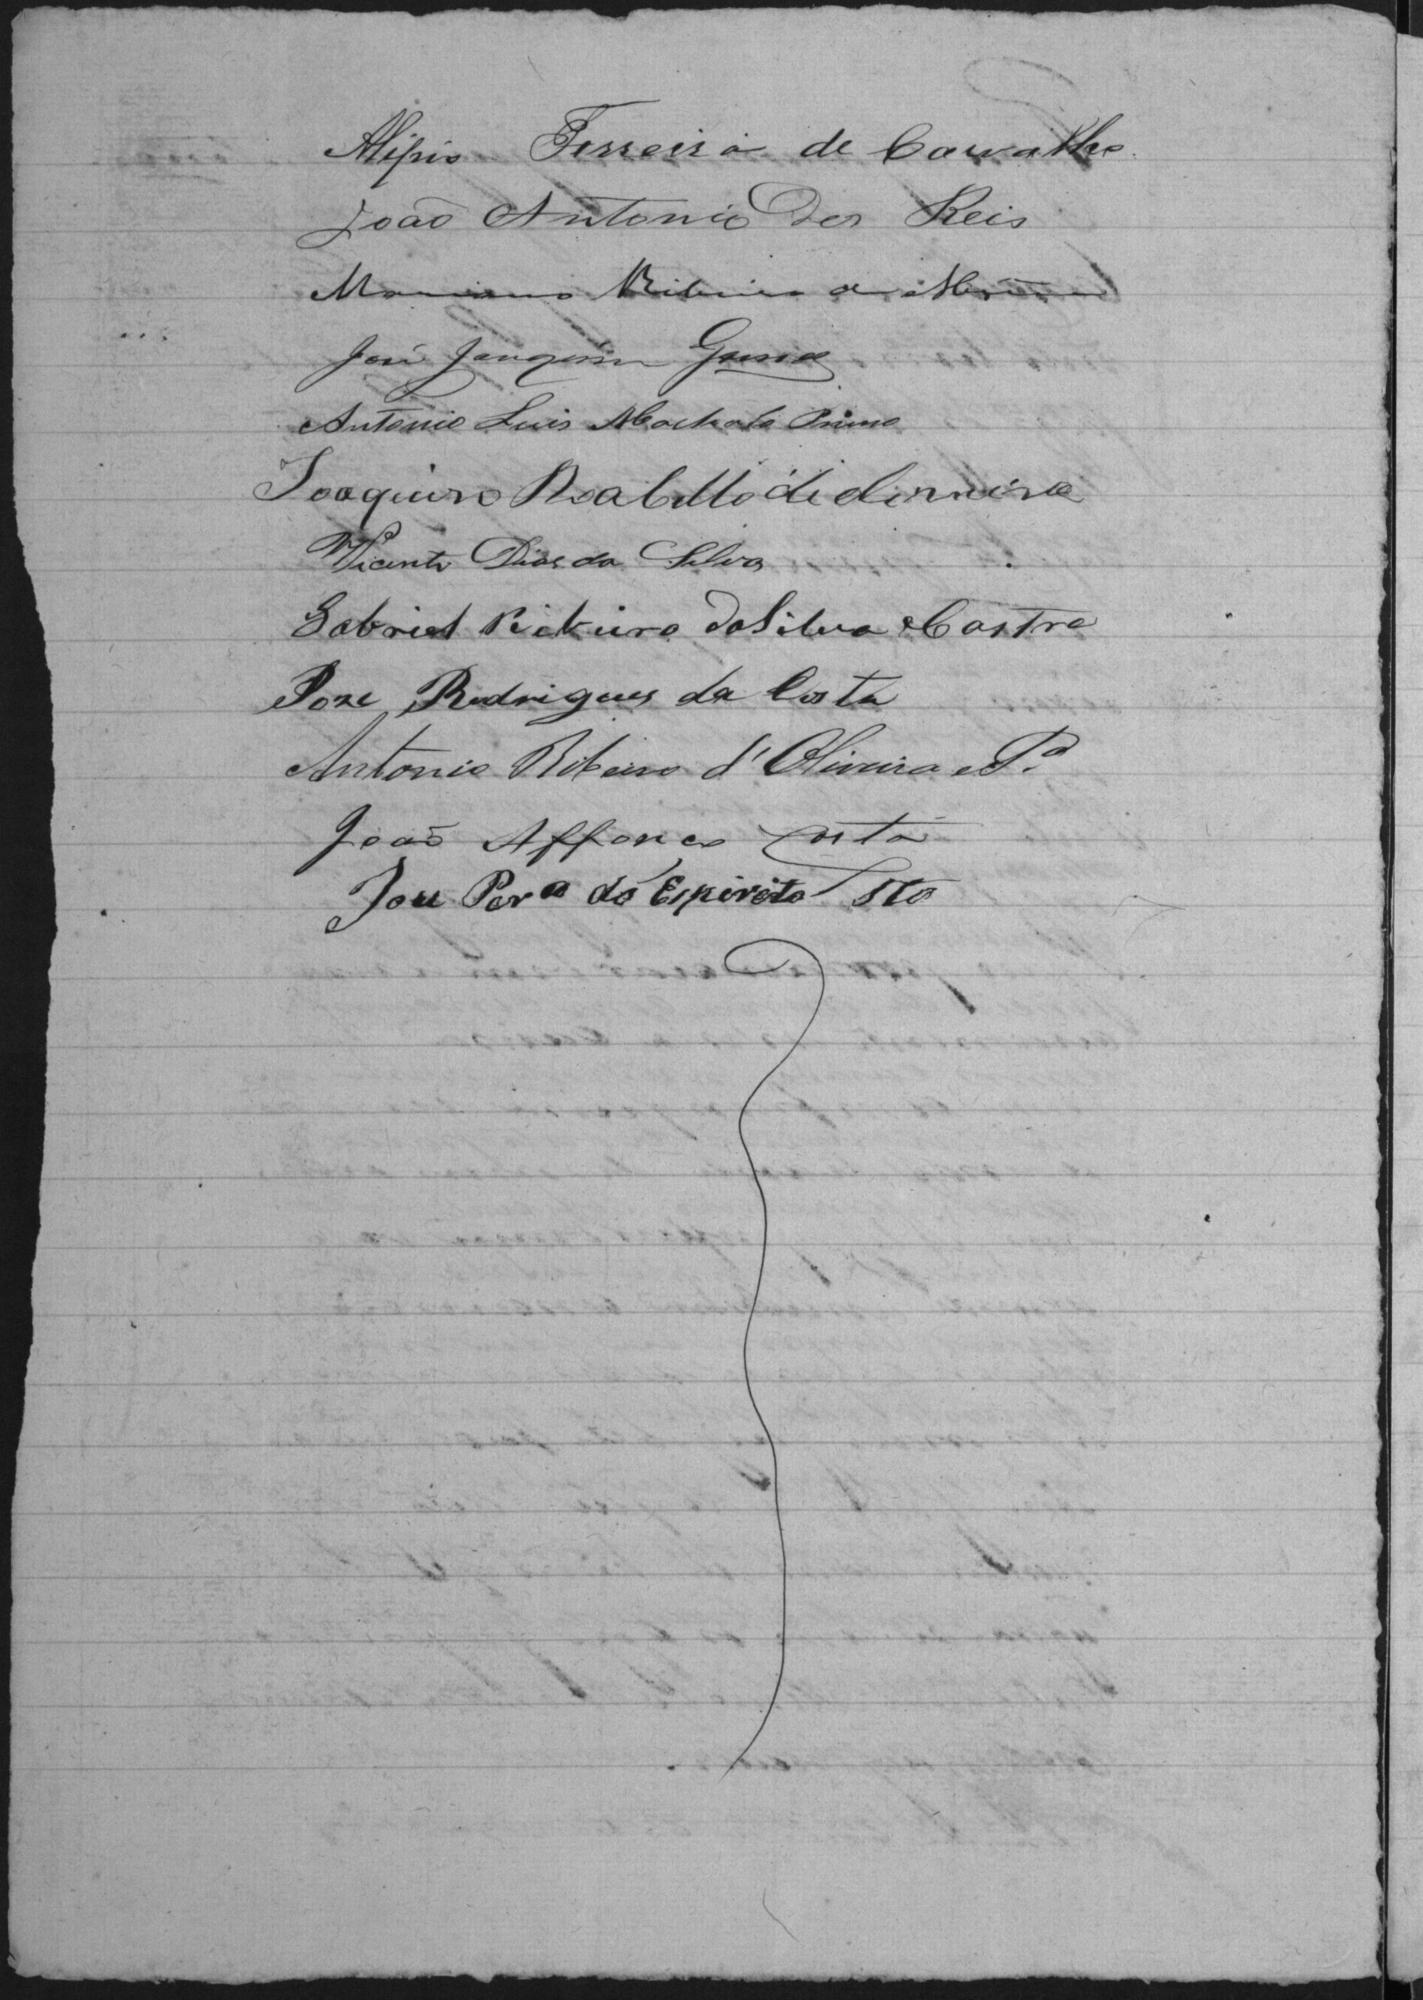 Alipio Ferreira de Carvalho
João Antonio dos Reis
Mariano Ribeiro de
José Joaquim
Antonio Luis Machado Primo
Joaquim Rabello di
Vicente Dias da Silva
Gabriel Ribeiro da Silva e Castro
Joze Rodrigues da Costa
Antonio Ribeiro d'Oliveira e Pª
João Affonco Costa
José Perª do Espirito Sto